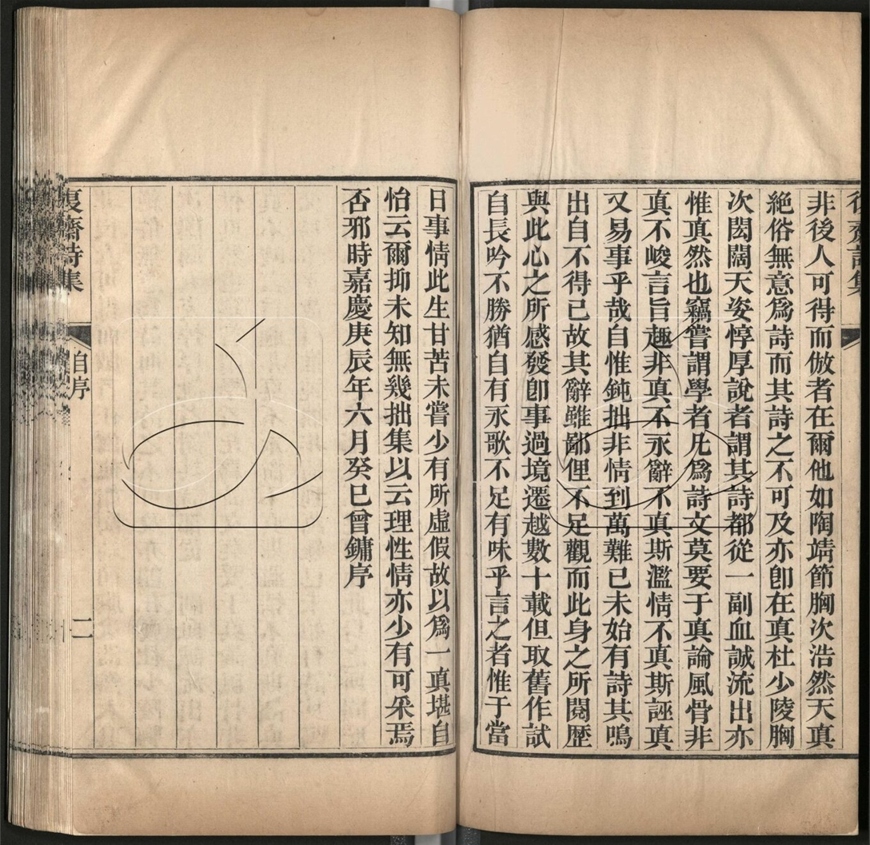 復齋詩集
非後人可得而倣者在爾他如陶靖節胸次浩然天真
絕俗無意為詩而其詩之不可及亦卽在真杜少陵胸
次閎闊天姿惇厚說者謂其詩都從一副血誠流出亦
惟真然也竊嘗謂學者凡為詩文莫要于真論風骨非
真不峻言旨趣非真不永辭不真斯濫情不真斯誣真
又易事乎哉自惟鈍拙非情到萬難已未始有詩其鳴
出自不得已故其辭雖鄙俚不足觀而此身之所閱歷
與此心之所感發卽事過境遷越數十載但取舊作試
自長吟不勝猶自有永歌不足有味乎言之者惟于當
日事情此生甘苦未嘗少有所虛假故以為一真堪自
怡云爾抑未知無幾拙集以云理性情亦少有可采焉
否邪時嘉慶庚辰年六月癸巳曾鏞序
復齋詩集
自序
二